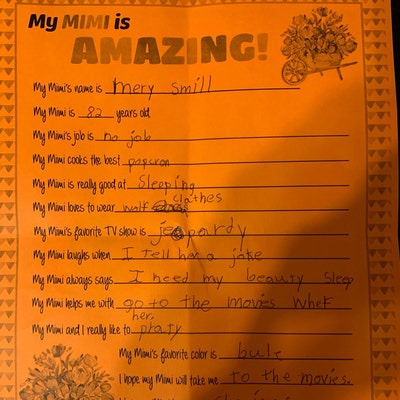 My MIMI is
AMAZING!
My Mimi's name is mery smill
My Mimi is 82 years old.
My Mimi's job is no job
My Mimi cooks the best popcron
My Mimi is really good at Sleeping
clathes
My Mimi loves to wear wolf
My Mimi's favorite TV show is jeopardy
My Mimi laughs when I tell her a joke
My Mimi always says I need my beauty sleep
My Mimi helps me with go to the movies whef
her.
My Mimi and I really like to praty
My Mimi's favorite color is bulr
I hope my Mimi will take me to the movies.